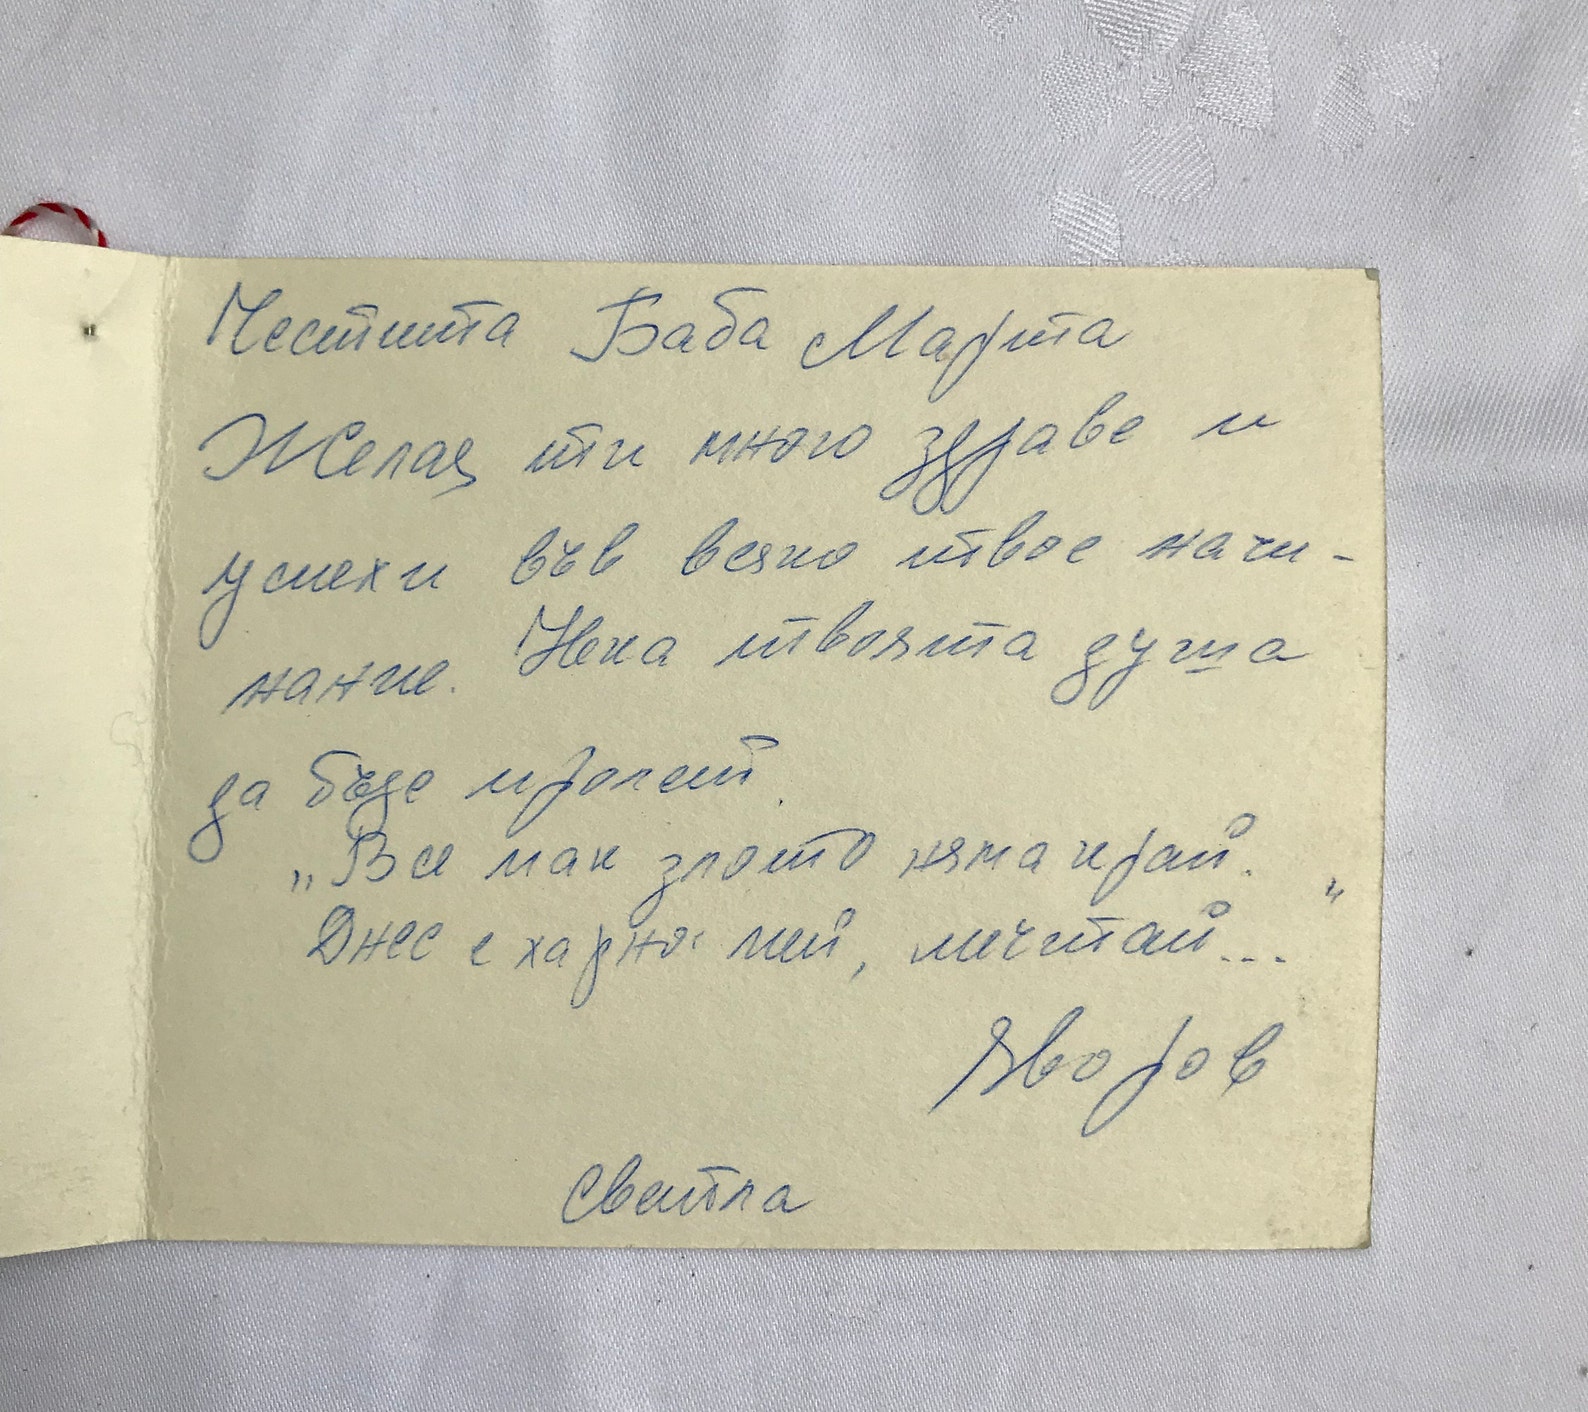 Честита Баба Марта
Желая ти много здраве и
успехи във всяко твое начи-
нание. Нека твоята душа
да бъде пролет.
„Все пак злото няма край.
Днес е харно: пей, мечтай..."
Яворов
Светла